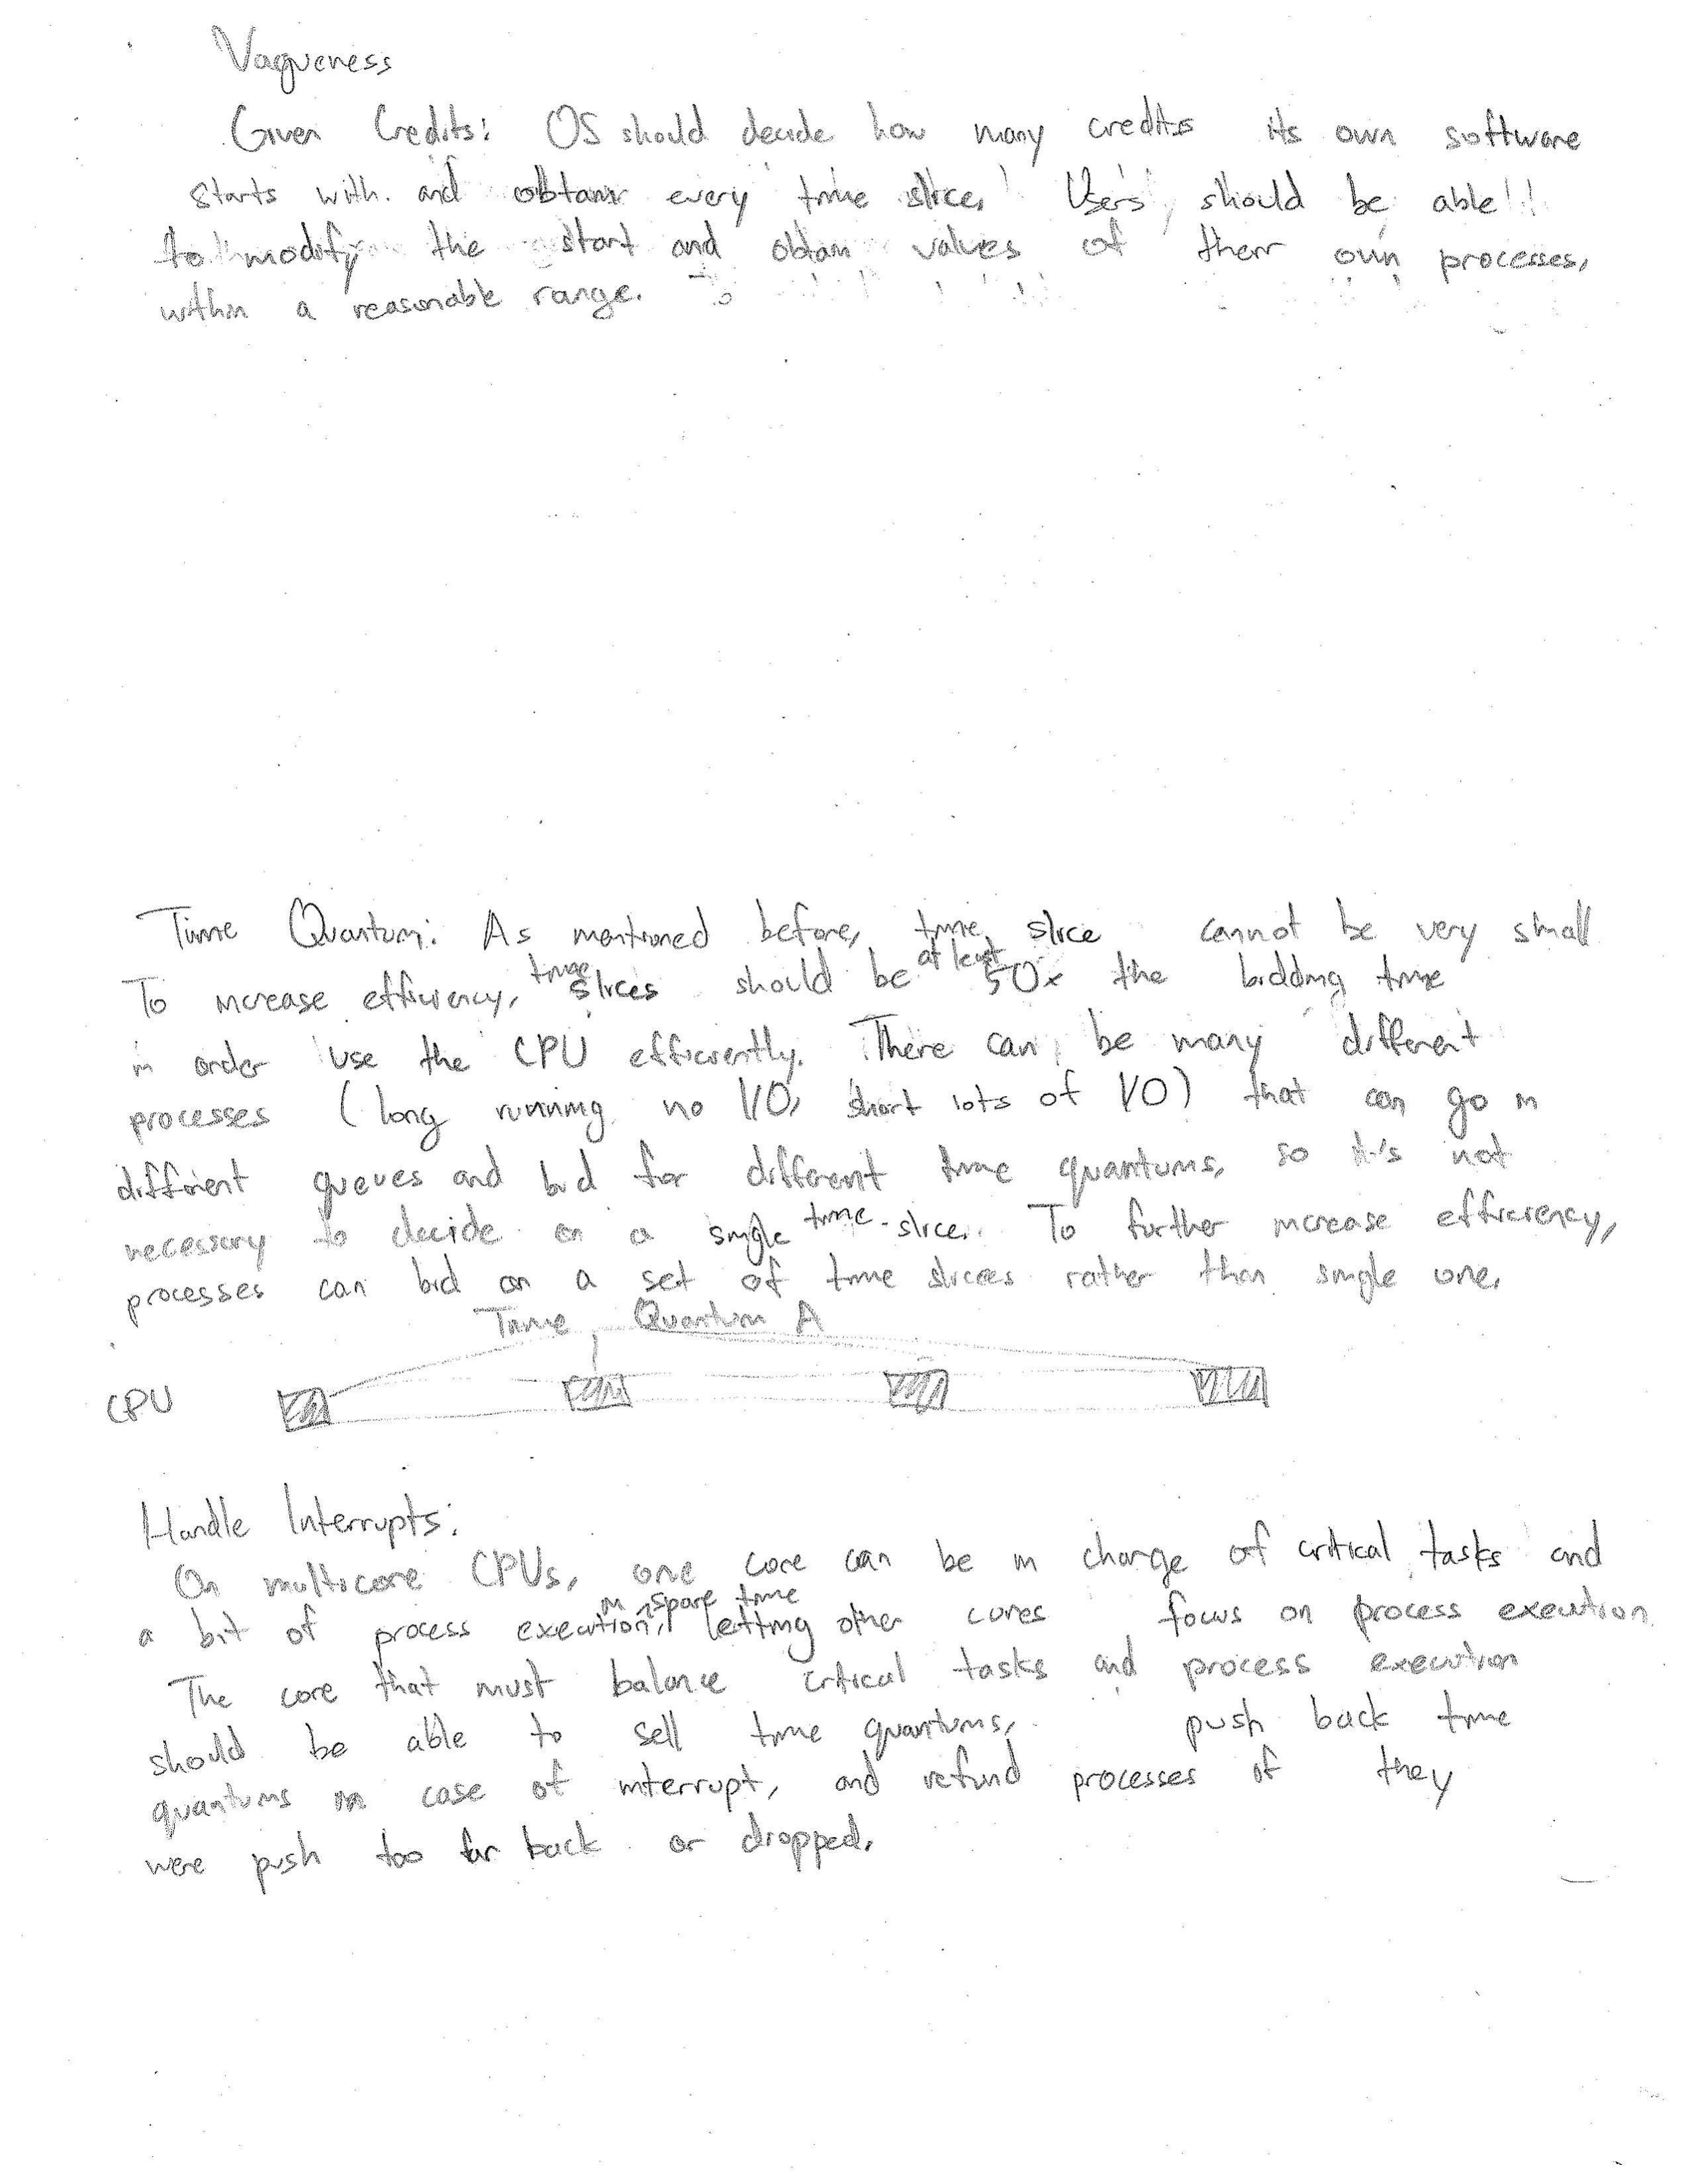 Vagueness
Given Credits: OS should decide how many credits its own software
starts with and obtains every time slice. Users should be able
to modify the start and obtain values of their own processes,
within a reasonable range.
Time Quantum: As mentioned before, time slice cannot be very small
To increase efficiency, time slices should be at least 50x the bidding time
in order use the CPU efficiently. There can be many different
processes (long running no I/O, short lots of I/O) that can go in
different queues and bid for different time quantums, so it's not
necessary to decide on a single time-slice. To further increase efficiency,
processes can bid on a set of time slices rather than single one.
Time Quantum A
CPU
Handle Interrupts:
On multicore CPUs, one core can be in charge of critical tasks and
a bit of process execution in spare time, letting other cores focus on process execution.
The core that must balance critical tasks and process execution
should be able to sell time quantums, push back time
quantums in case of interrupt, and refund processes if they
were push too far back or dropped.